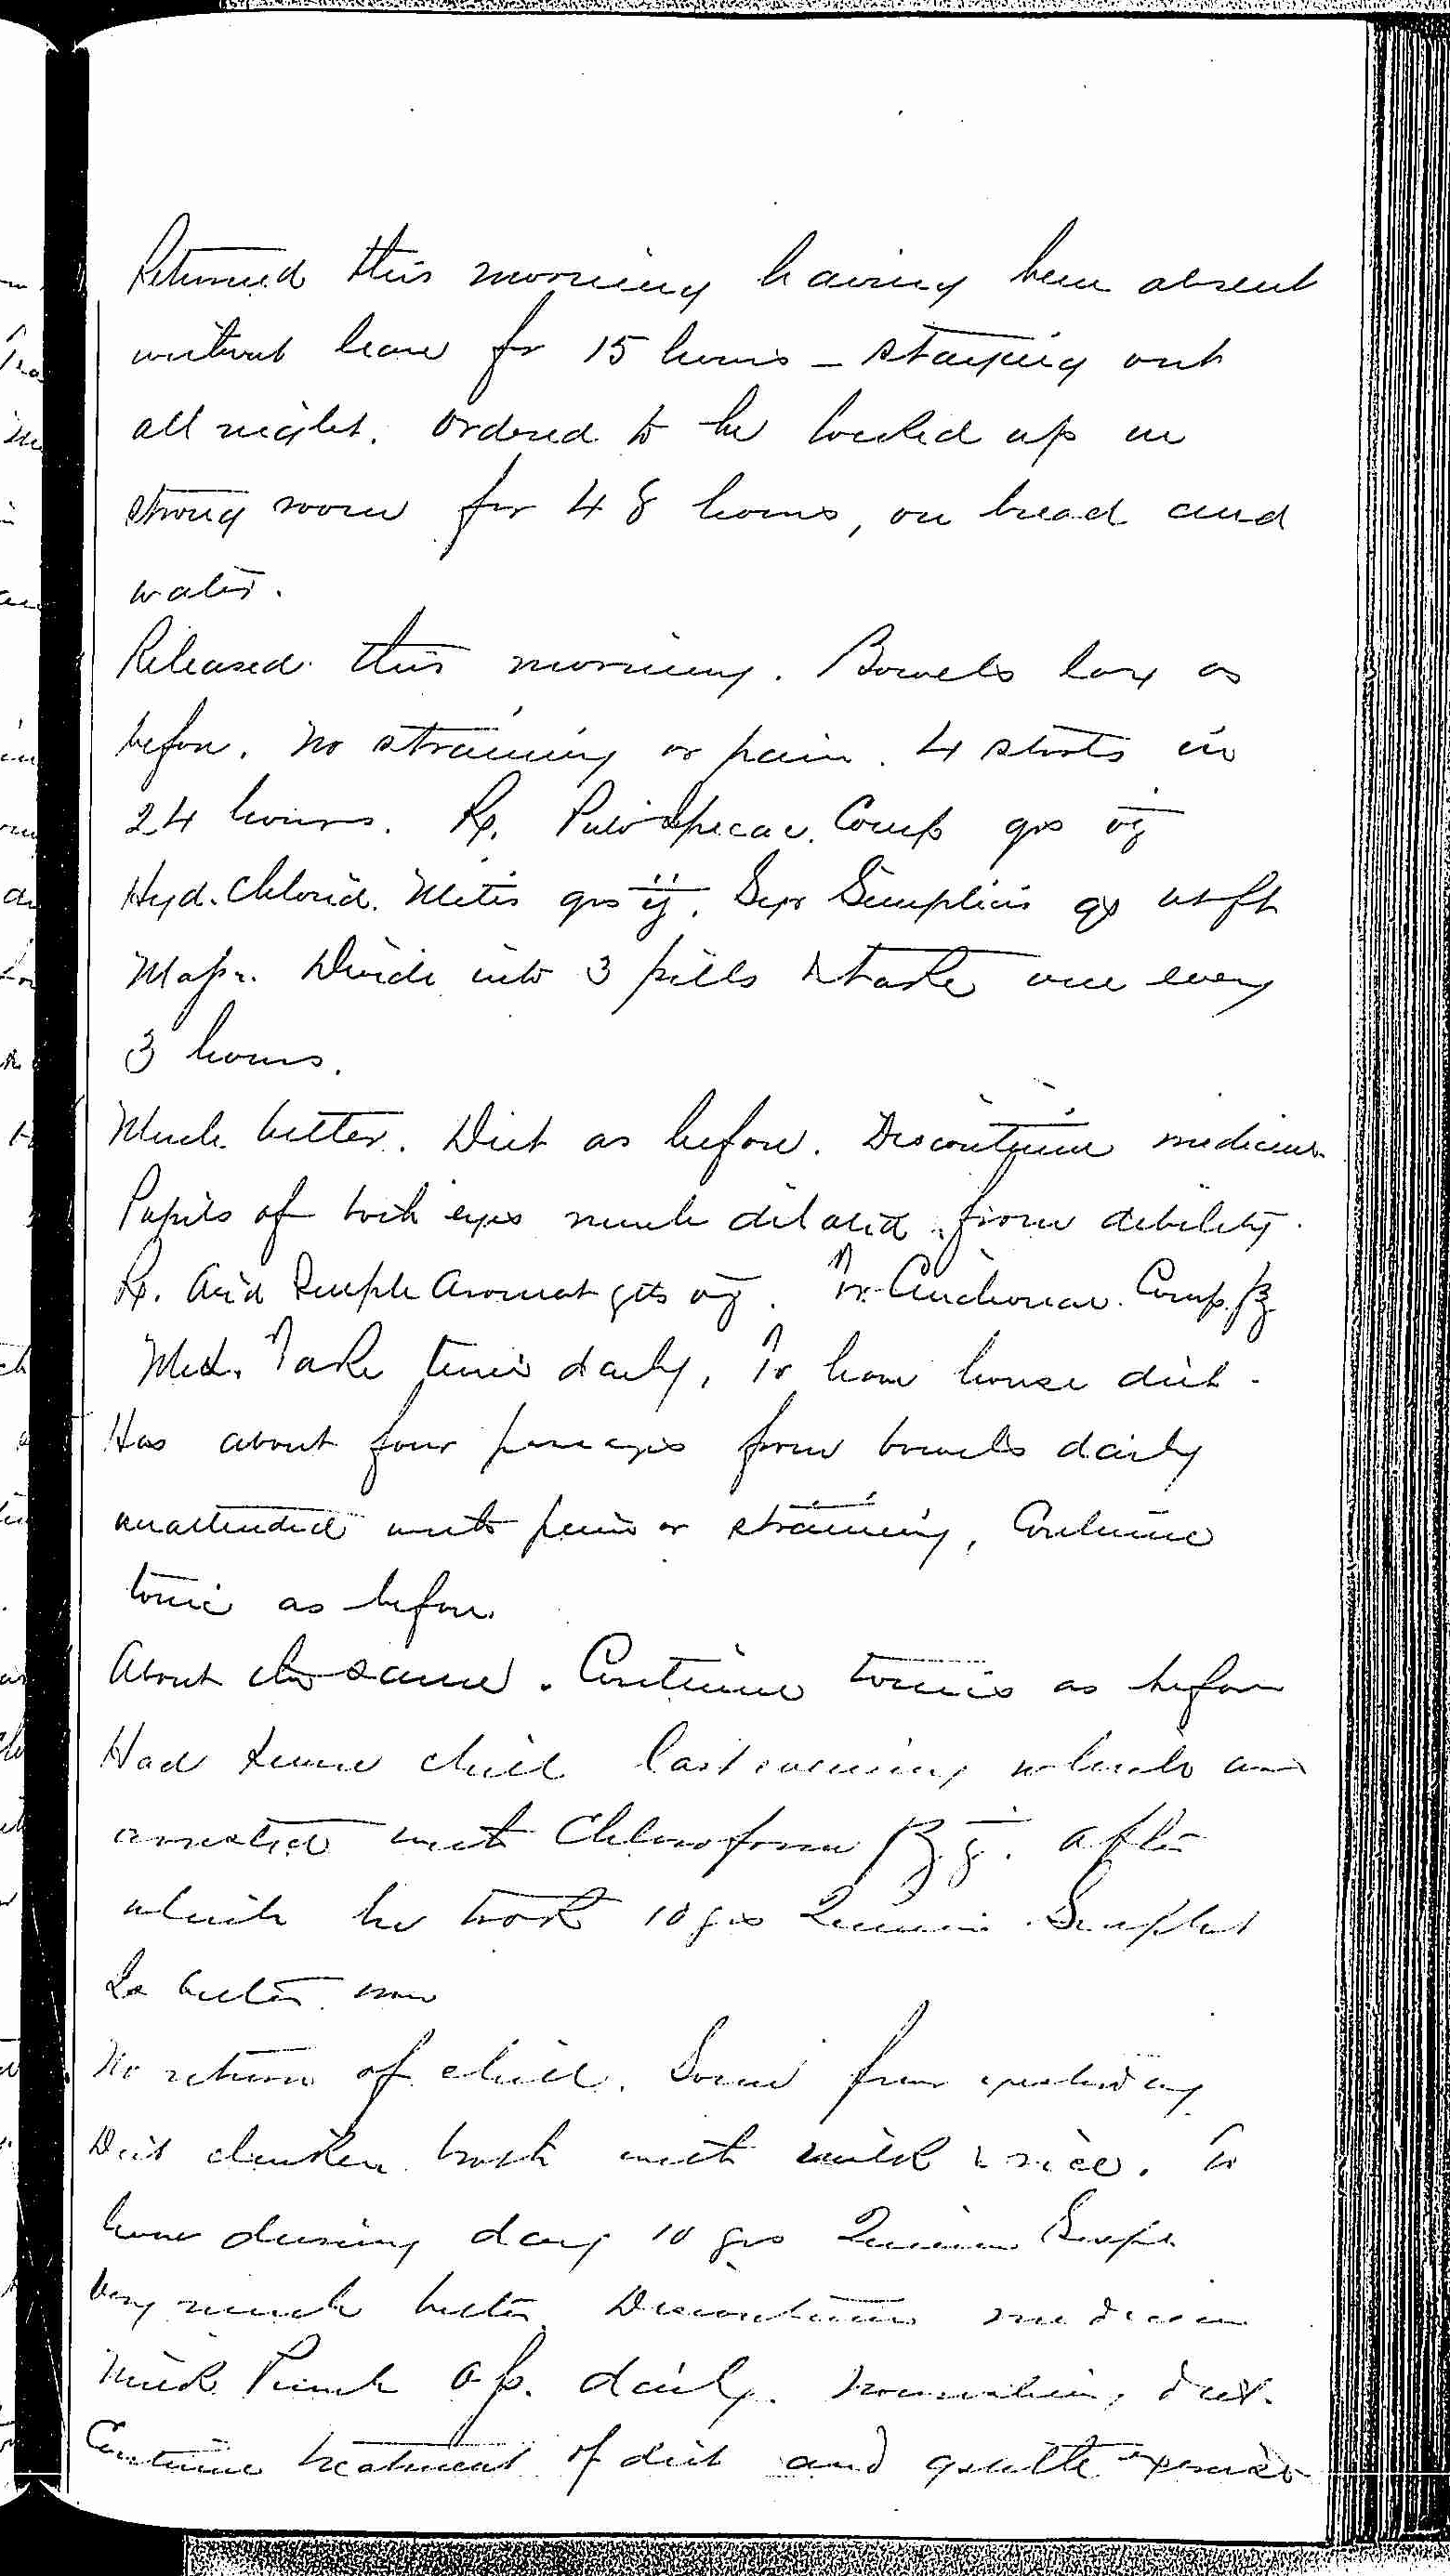 Returned this morning having been absent
without leave for 15 hours – staying out
all night. Ordered to be locked up in
strong room for 48 hours, on bread and
water.
Released this morning. Bowels lax as
before. No straining or pain. 4 stools in
24 hours. Rx. Pulv Ipecac. Comp grs vj
Hyd. Chlorid. Mitis grs ij. Syr Simplicis qs ut ft
Massa. Divide into 3 pills & take one every
3 hours.
Much better. Diet as before. Discontinue medicine
Pupils of both eyes much dilated from debility.
Rx. Acid Sulph Aromat gtts vj. Tr. Cinchonae. Comp. ʒj
Mix. Take thrice daily, To have house diet.
Has about four passages from bowels daily
unattended with pain or straining, Continue
tonic as before
About the same. Continue tonics as before
Had severe chill last evening which was
arrested with Chloroform ʒj. after
which he took 10 grs Quinia Sulphat
Is better now
No return of chill. Some fever yesterday
Diet chicken broth with milk & rice. To
have during day 10 grs Quinia Sulph.
Very much better. Discontinue medicine
Milk Punch daily. Nourishing diet.
Continue treatment of diet and gentle exercise